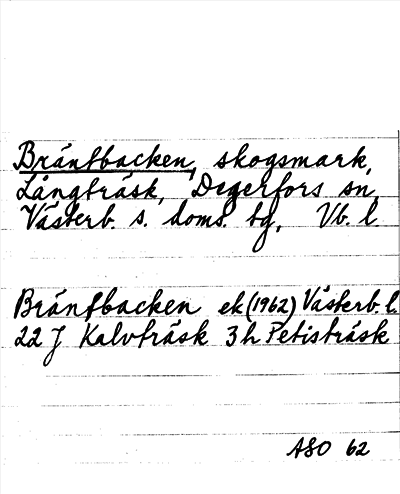 Bräntbacken, skogsmark,
Långträsk, Degerfors sn,
Västerb. s. doms. tg, Vb. l
Bräntbacken ek (1962) Västerb. l.
22 J Kalvträsk 3 h Petisträsk
ASO 62